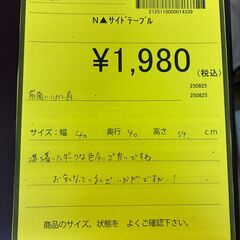 2125110000014339
N▲サイドテーブル
¥1,980
(税込)
250825
250825
サイズ:幅 40 奥行 40 高さ 54. cm
落ち着いたダークな色合いですね
お安くなっているのでいかがですか!
商品のサイズ、状態を よくご確認下さい。